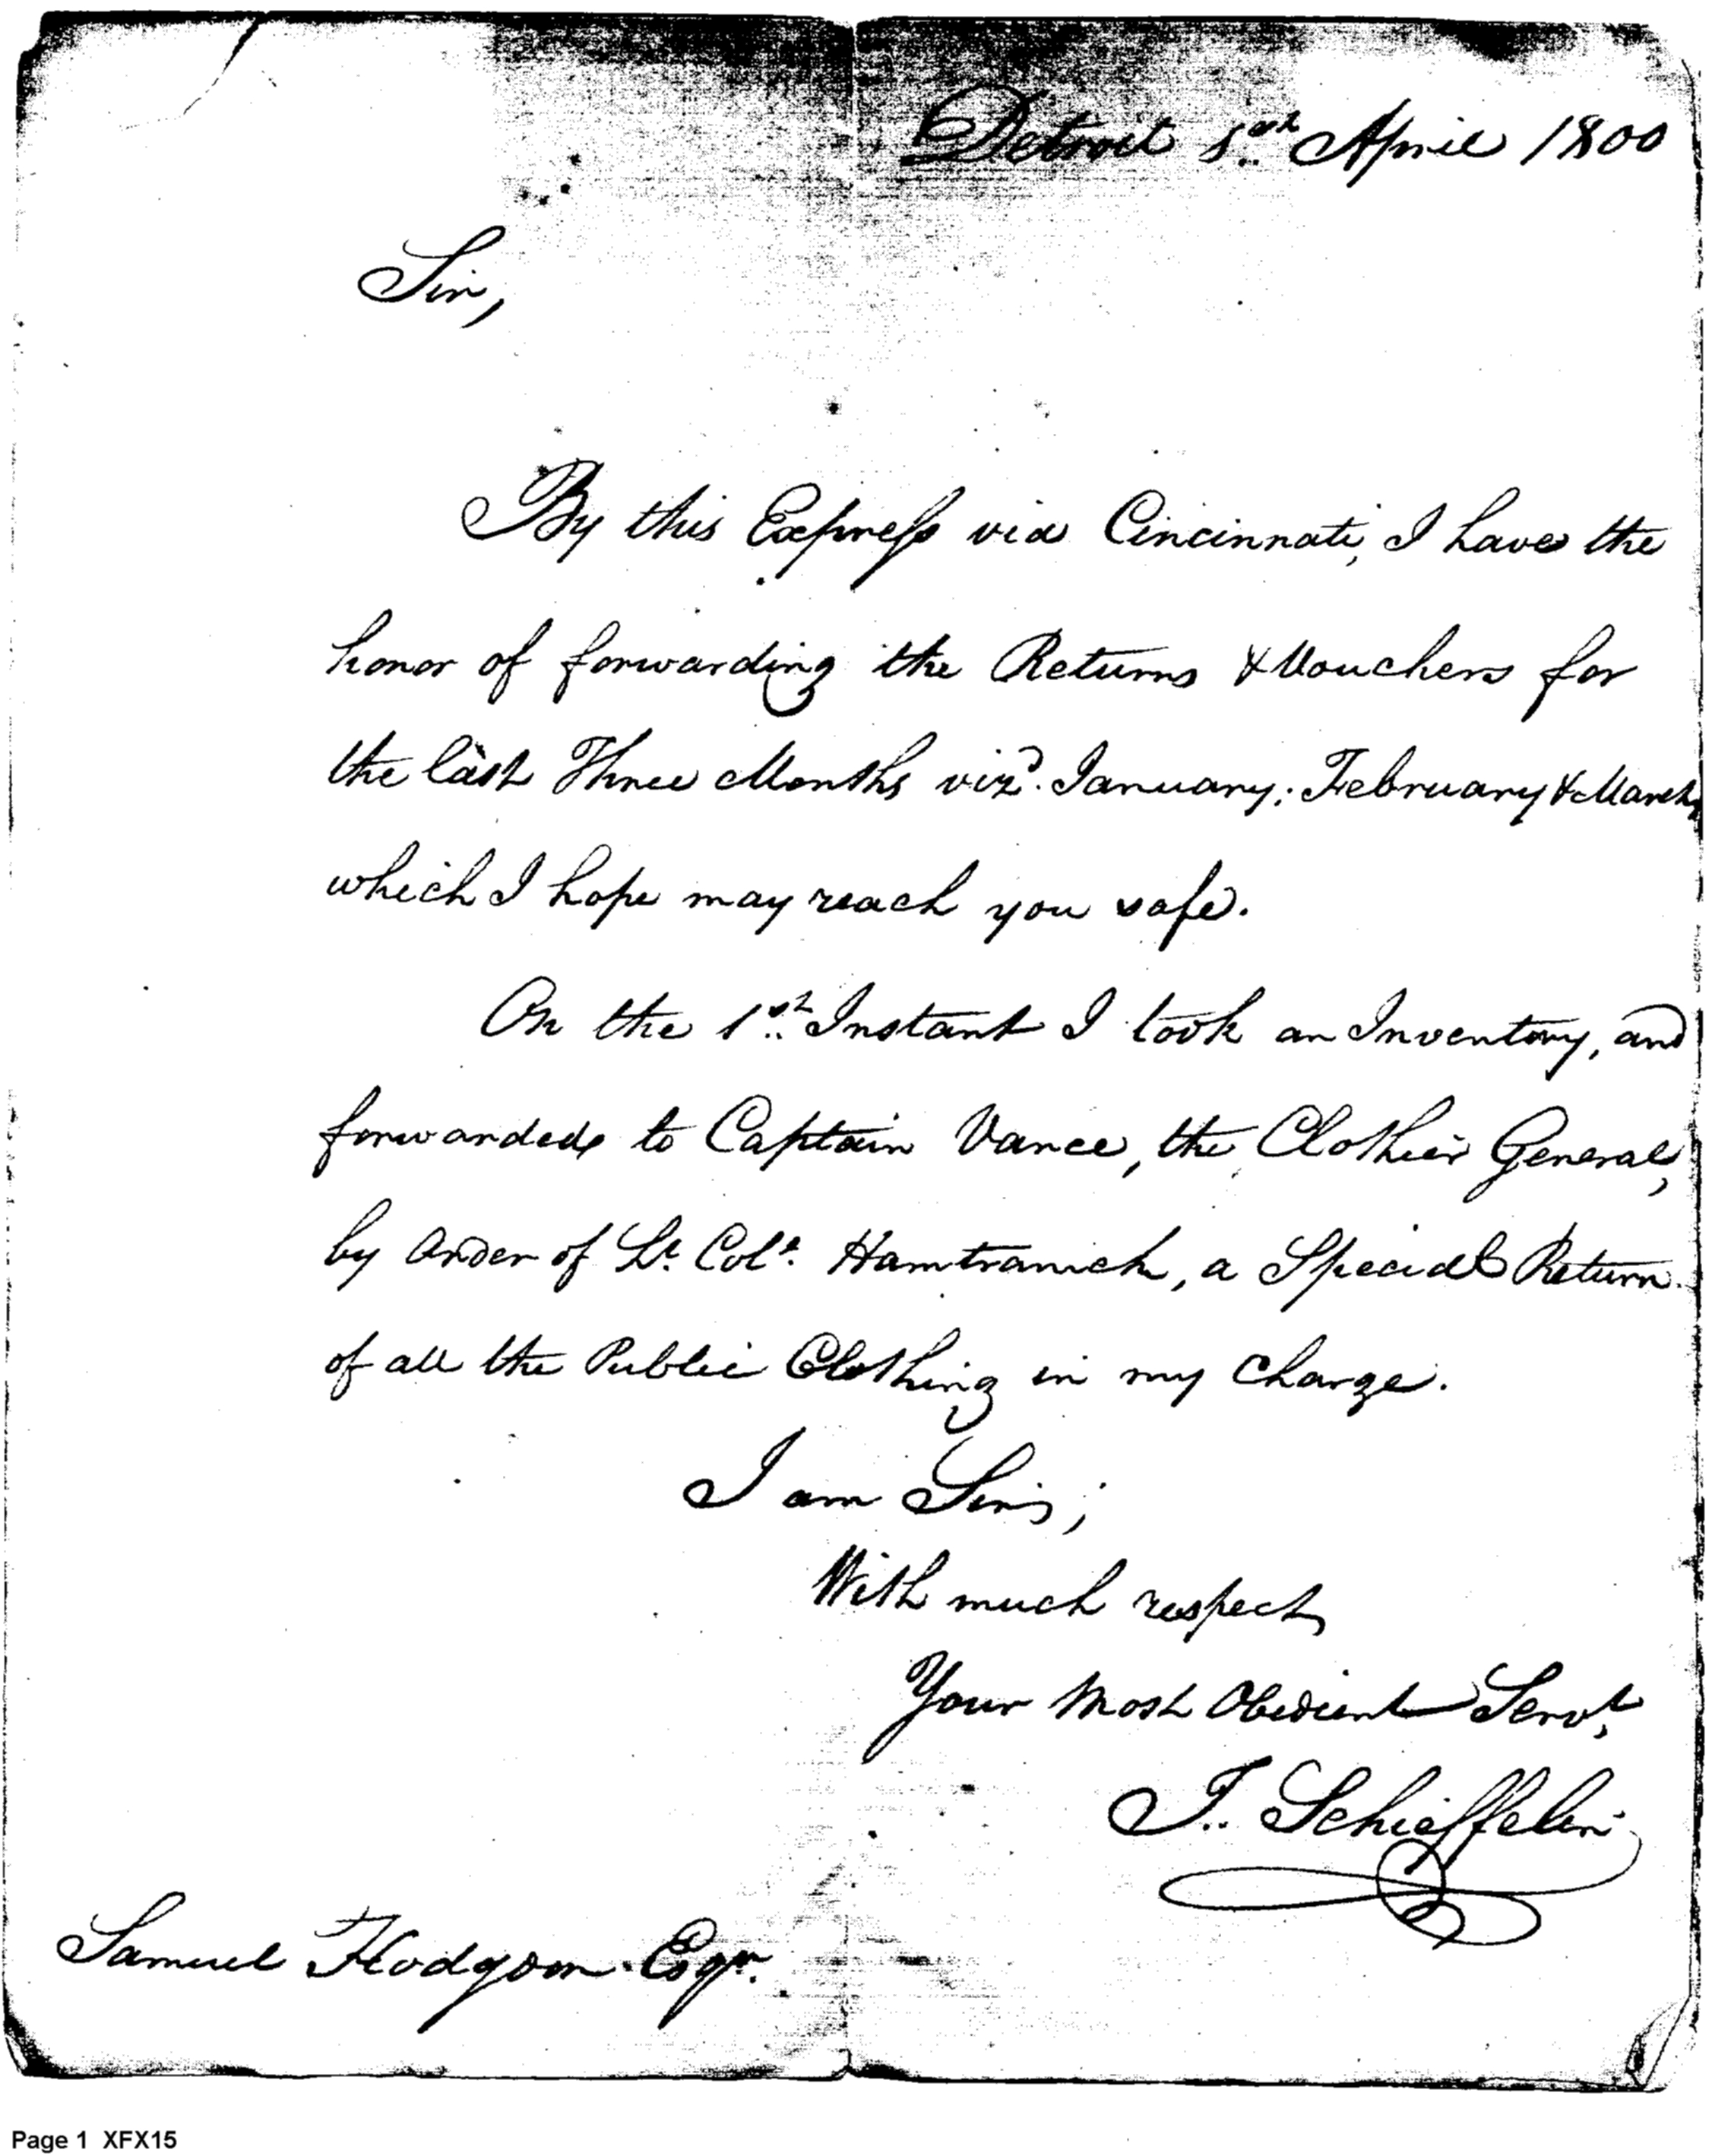 Detroit April 1800
Sir,
By this Express via Cincinnati, I have the
honor of forwarding the Returns & Vouchers for
the last Three Months vizt. January; February & March,
which I hope may reach you safe.
On the 1st. Instant I took an Inventory, and
forwarded to Captain Vance, the Clothier General,
by Order of Lt. Coll. Hamtramck, a Special Return
of all the Public Clothing in my Charge.
I am Sir;
With much respect,
Your Most Obedient Servt,
J. Schieffelin
Samuel Hodgson Esqr.
Page 1 XFX15